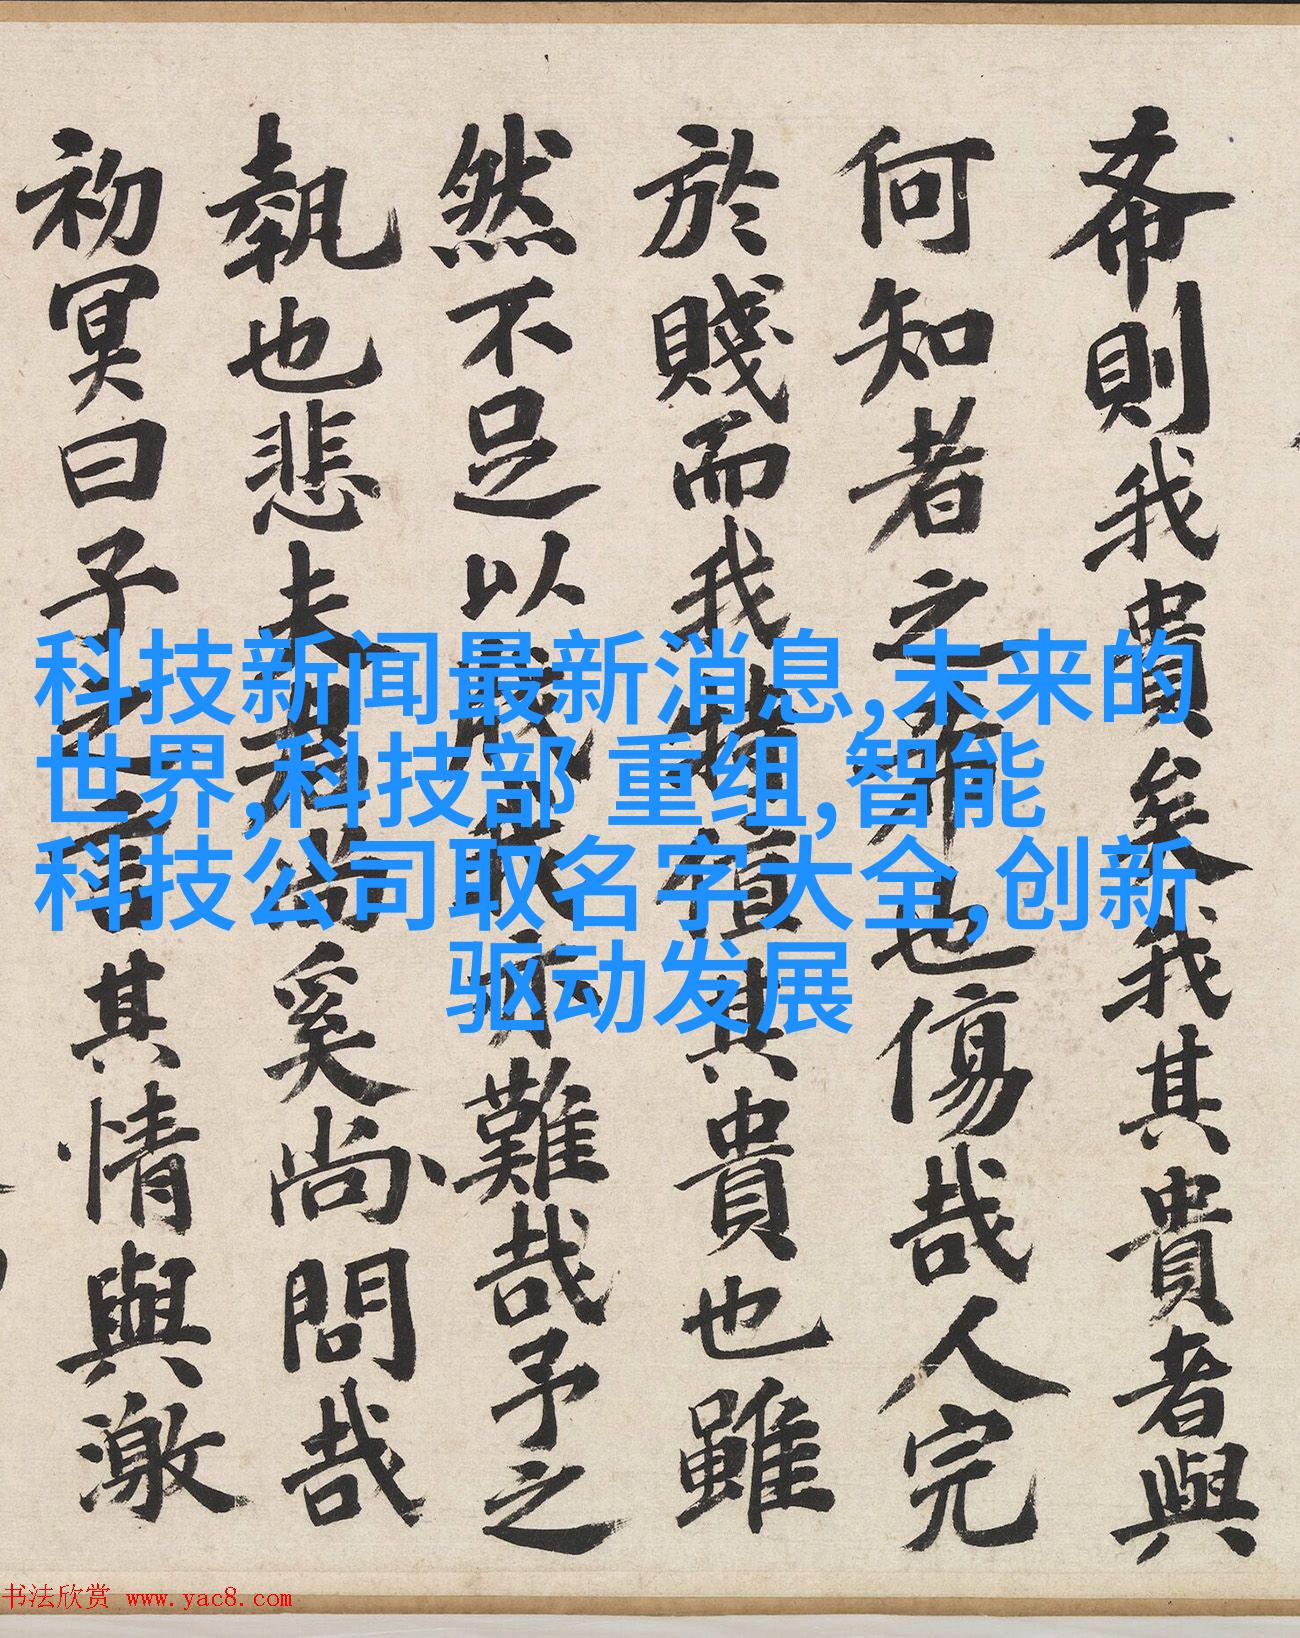 希則我貴矣我其貴者與
何知者之也傷哉人完
於賤而我其貴也雖
然不足以亦難哉予之
執也悲夫奚尚問哉
初冥曰子之言其情與激
科技新闻最新消息,未来的
世界,科技部 重组,智能
科技公司取名字大全,创新
驱动发展
书法欣赏 www.yac8.com